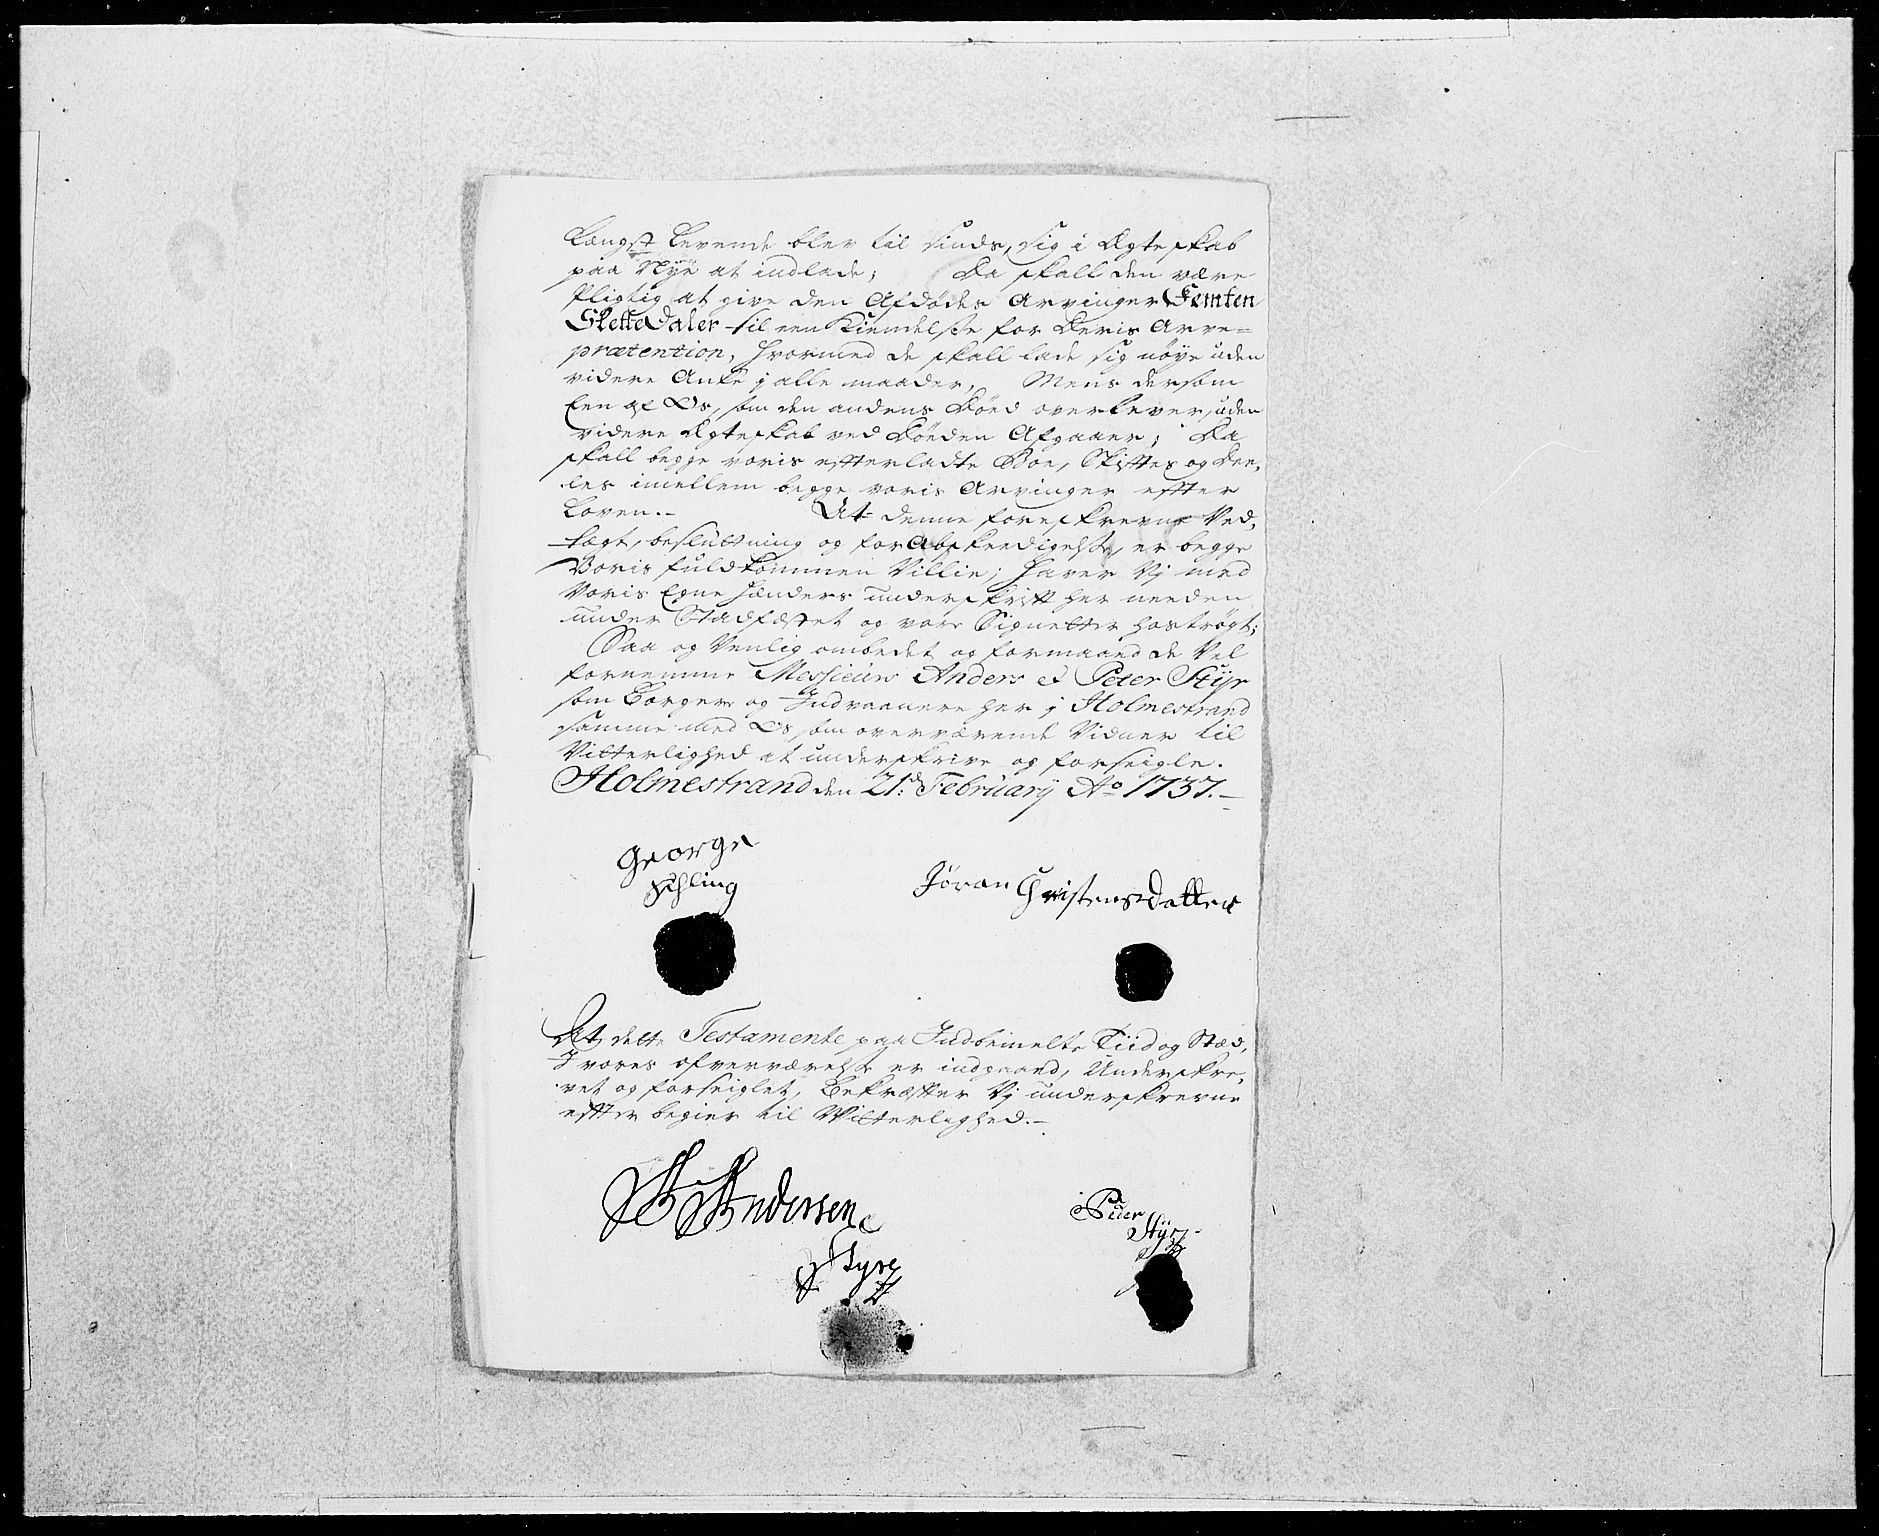 Længst Levende blev til sinds, sig i Ægteskab
paa Nÿe at indlade; Da skall den være
Pligtig at give den Afdødes Arvinger Femten
Slette Daler til een Kiendelse for Deris Arve=
prætention, hvormed de skall lade sig nöye uden
videre Anke j alle maader, Mens dersom
Een af Os, som den andens Död overlever, uden
videre Ægteskab ved Döden Afgaaer; Da
skall begge voris effterladte Boe, Skifftes og Dee,
les imellem begge voris Arvinger effter
Loven.- At denne foreskrevne Ved,
tægt, besluttning og forAbskeedigelse, er begge
Voris fuldkommen Villie; Haver Vj med
Voris Egne Hænders underskrifft her needen
under Stadfæstet og vore Signetter hoströgt;
Saa og Venlig ombedet og formaaed de Vel
fornemme Messieurs Anders et Peter Stÿr
som Borgere og Indvaanere her j Holmestrand
samme med Os, som overværende Vidner til
Vitterlighed at underskrive og forseigle.
Holmestrand den 21.de Februarÿ Ao 1737.-
George
Schling
Jöran Christensdatter
At dette Testamente paa Indbemelte Tiid og Stæd,
I vores ofverværelse er indgaaed, Underskre,
vet og forseiglet, Bekræffter Vj underskrevne
effter begier til Witterlighed.-
A Andersen
Styr
Peter
Stÿr